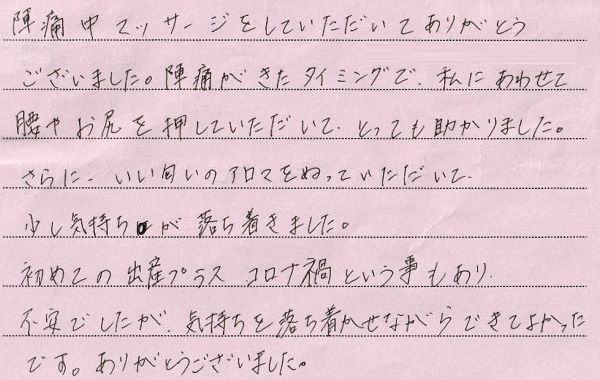 陣痛中マッサージをしていただいてありがとう
ございました。陣痛がきたタイミングで、私にあわせて
腰やお尻を押していただいて、とっても助かりました。
さらに、いい匂いのアロマをぬっていただいて、
少し気持ちが落ち着きました。
初めての出産プラス コロナ禍という事もあり、
不安でしたが、気持ちを落ち着かせながらできてよかった
です。ありがとうございました。